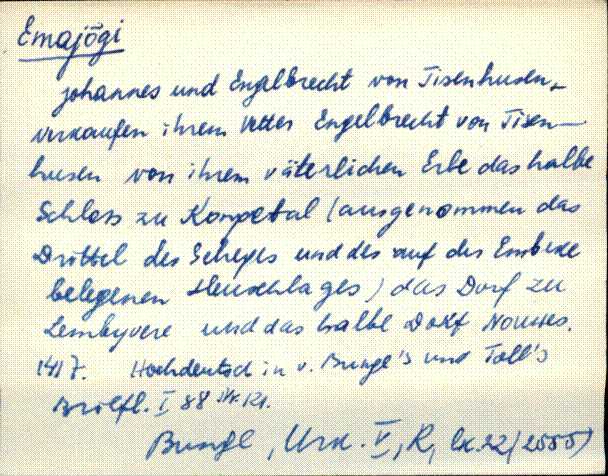 Emajõgi
Johannes und Engelbrecht von Tisenhusen
verkaufen ihrem Vetter Engelbrecht von Tisen-
husen von ihrem väterlichen Erbe das halbe
Schloss zu Kongetal (ausgenommen das
Drittel des und des auf der Embeke
belegenen Heuschlages) das Dorf zu
Lembyvere und das halbe Dorf
1417. Hochdeutsch in v. Bunge's und Toll's
Brölfl. I 88
Bunge, Urk. V, R, lk. 22 (2555)